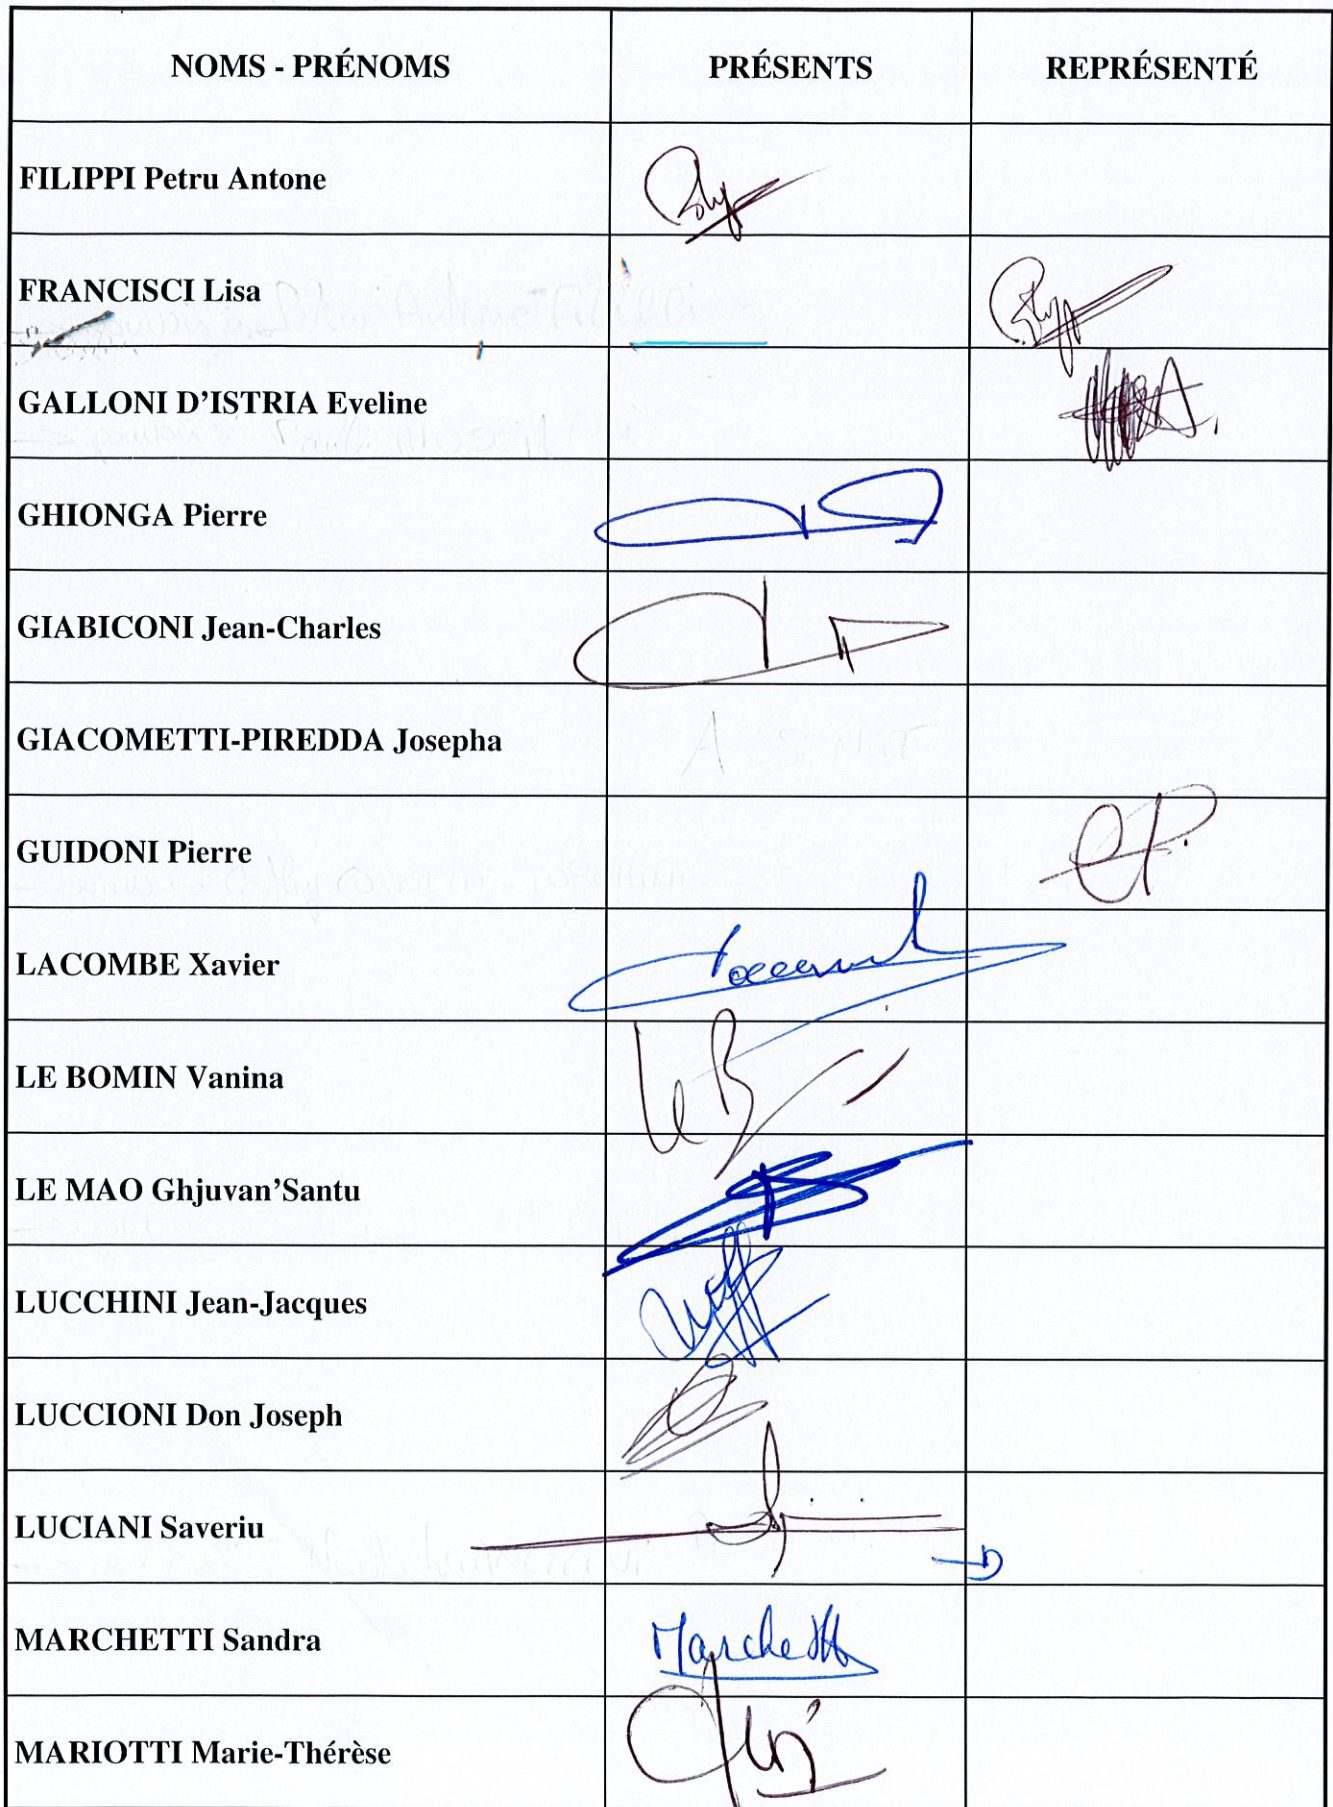 NOMS - PRÉNOMS PRÉSENTS REPRÉSENTÉ
FILIPPI Petru Antone
FRANCISCI Lisa
GALLONI D'ISTRIA Eveline
GHIONGA Pierre
GIABICONI Jean-Charles
GIACOMETTI-PIREDDA Josepha
GUIDONI Pierre
LACOMBE Xavier
LE BOMIN Vanina Le B
LE MAO Ghjuvan’Santu
LUCCHINI Jean-Jacques
LUCCIONI Don Joseph
LUCIANI Saveriu
MARCHETTI Sandra Marchetti
MARIOTTI Marie-Thérèse